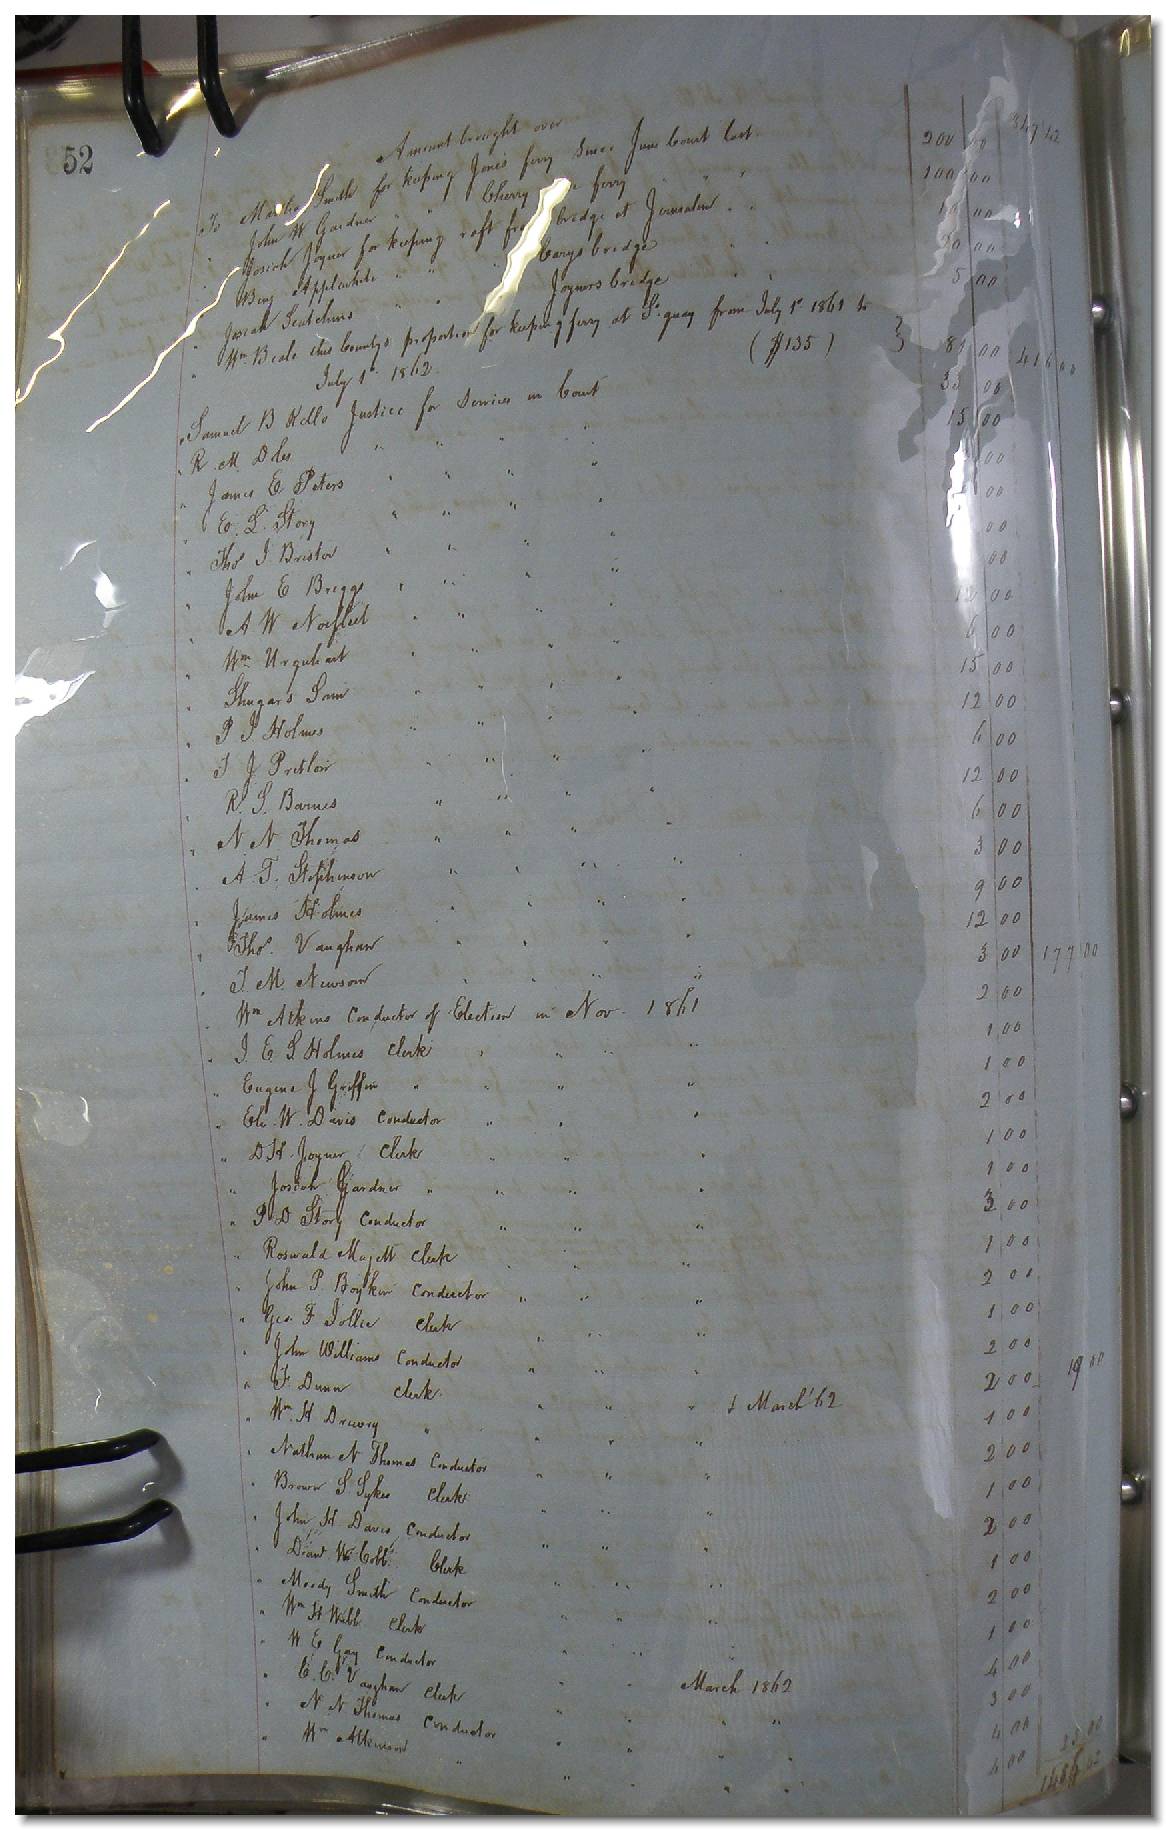 52
Amount brought over 62
To Smith for keeping Jones ferry since June Court last 200 00
" John W Gardner " " Cherry ferry " " " 100 00
" Josiah Joyner for keeping raft from bridge at Jerusalem " " 00
" Benj Applewhite " " " Carys bridge " " 00
" Josiah Scutchins " " Joyners bridge 5 00
" Wm Beale this Countys proportion for keeping ferry at S. quay from July 1st 1861 to
July 1st 1862 ($135) } 81 00 416 00
" Samuel B Kello Justice for Services in Court 00
" R. M. Doles " " " " 15 00
" James E Peters " " " 00
" E. L. Story " " " " 00
" Thos J Bristor " " " 00
" John E Briggs " " " " 00
" A W Norfleet " " " 12 00
" Wm Urquhart " " " " 6 00
" Shugars Sain " " " " 15 00
" P J Holmes " " " " 12 00
" T J Pretlow " " " " 6 00
" R. S. Barnes " " " " 12 00
" N N Thomas " " " " 6 00
" A. T. Stephenson " " " " 3 00
" James Holmes " " " " 9 00
" Thos. Vaughan " " " " 12 00
" T. M. Newsom " " " " 3 00 177 00
" Wm Atkins Conductor of Election in Nov. 1861 2 00
" J. E. S Holmes Clerk " " " " 1 00
" Eugene J Griffin " " " " 1 00
" Eli. W. Davis Conductor " " " 2 00
" D. H. Joyner Clerk " " " 1 00
" Josiah Gardner " " " " 1 00
" P. D Story Conductor " " " 3 00
" Roswald Majett Clerk " " " 1 00
" John P. Boykin Conductor " " " 2 00
" Geo. F Jollie Clerk " " " 1 00
" John Williams Conductor " " " 2 00
" F. Dunn Clerk " " " & March '62 2 00 19 00
" Wm. H Drewry " " " " 1 00
" Nathan N Thomas Conductor " " " 2 00
" Brown S Sykes Clerk " " " 1 00
" John H Davis Conductor " " " 2 00
" W. Cobb Clerk " " " 1 00
" Moody Smith Conductor " " " 2 00
" Wm H Webb Clerk " " " 1 00
" W E Gay Conductor " " March 1862 4 00
" C. C. Vaughan Clerk " " " " 3 00
" N. N Thomas Conductor " " " 4 00
" Wm Atkinson " " " " 4 00 00